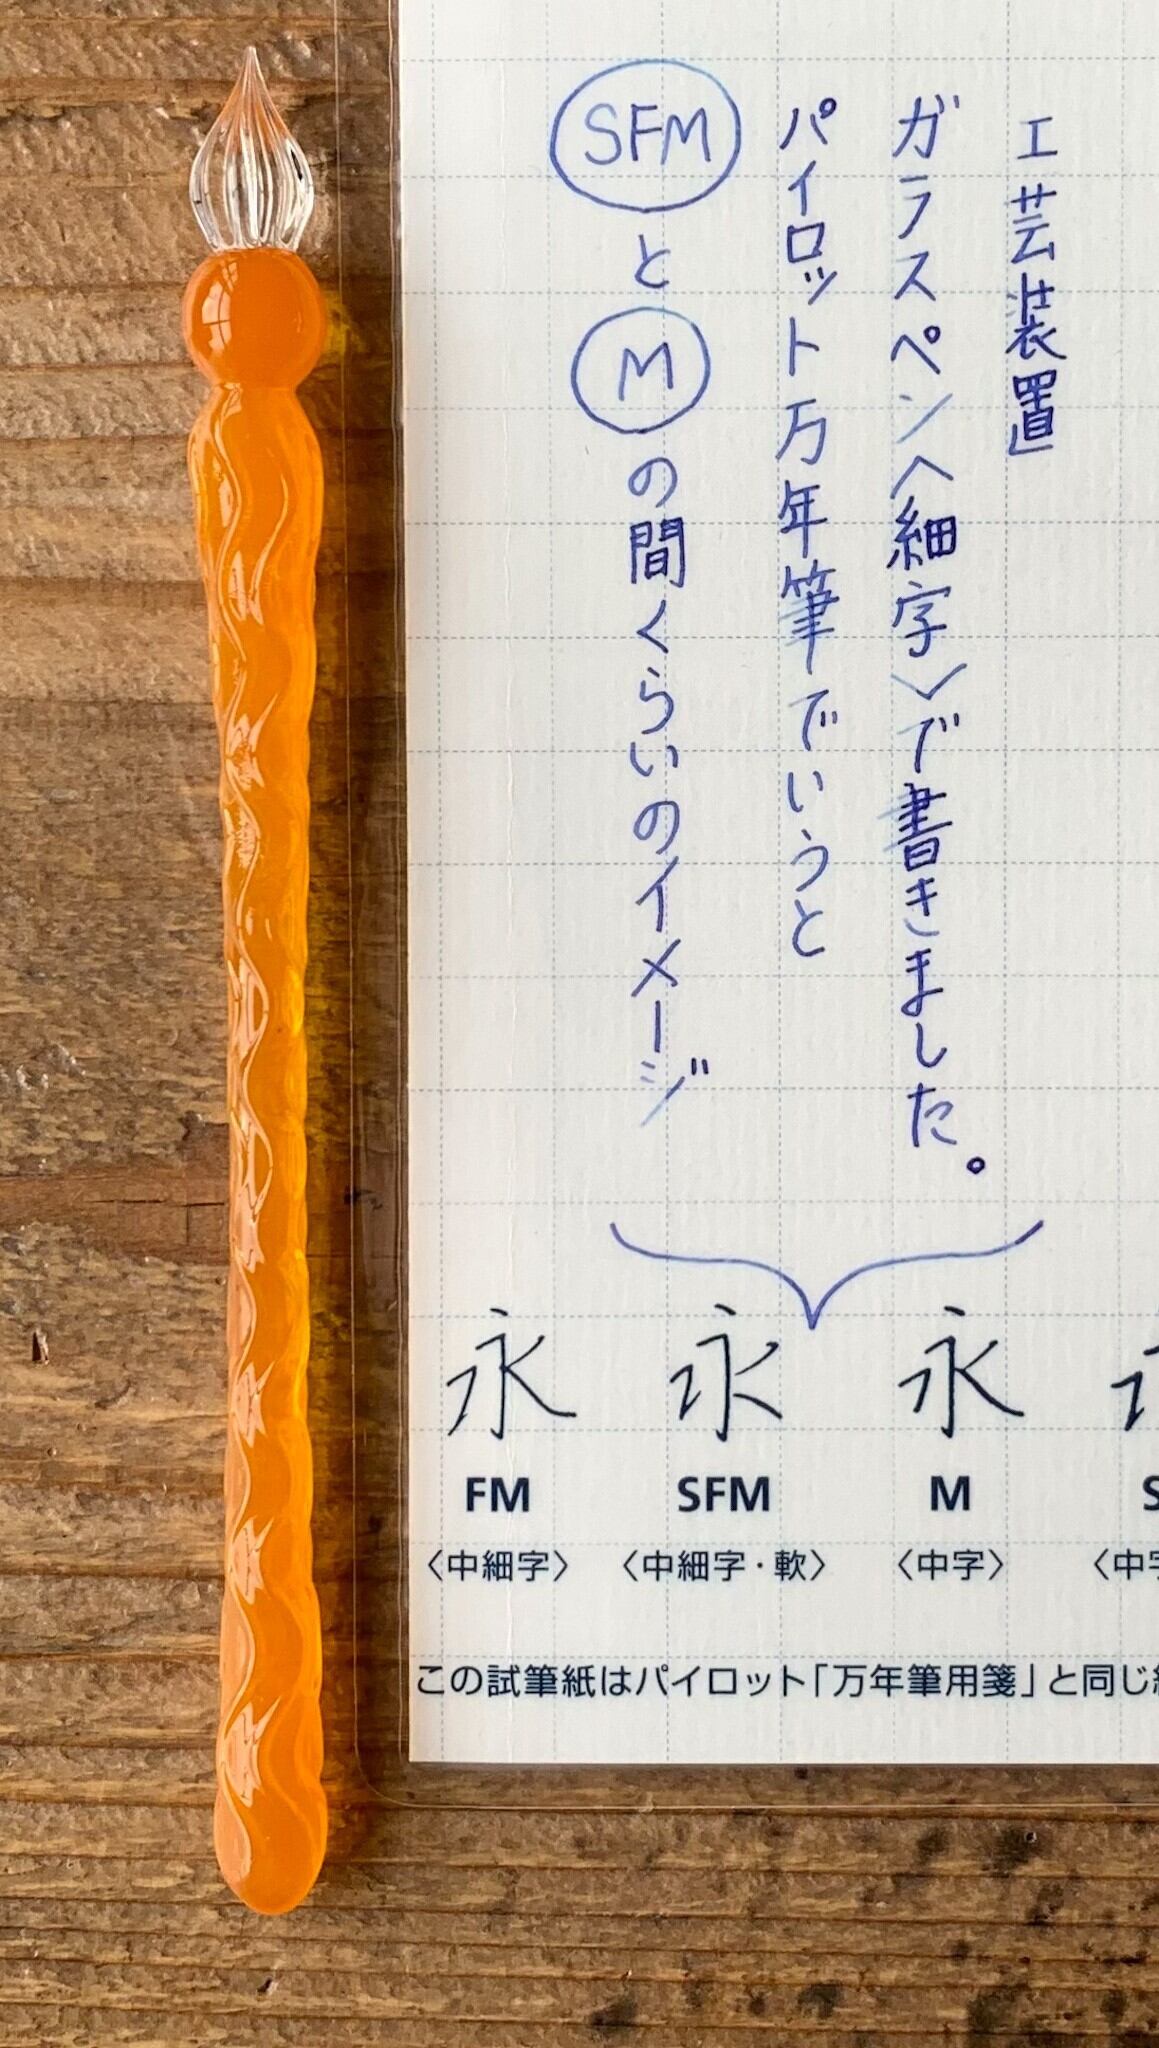 工芸装置
ガラスペン〈細字〉で書きました。
パイロット万年筆でいうと
SFMとMの間くらいのイメージ
永 永 永
FM SFM M S
〈中細字〉 〈中細字・軟〉 〈中字〉 〈中字
この試筆紙はパイロット「万年筆用箋」と同じ